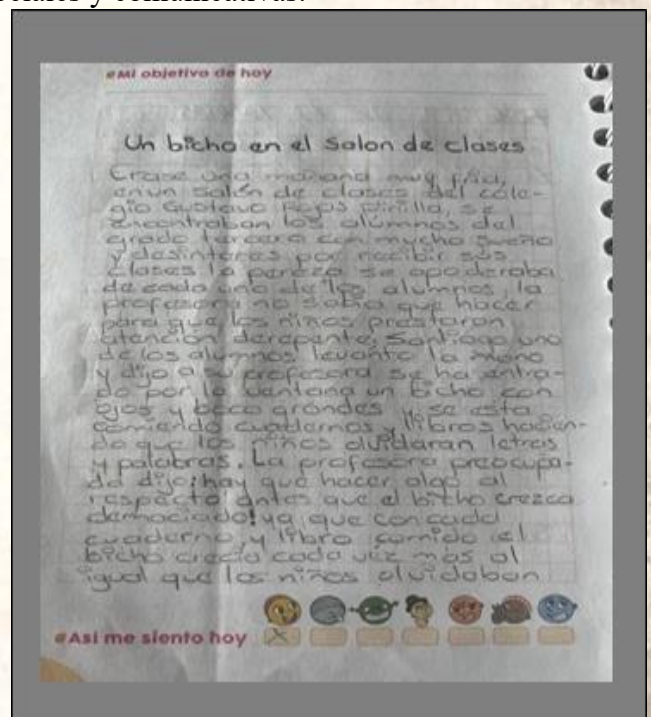 ciales y comunicativas.
#Mi objetivo de hoy
Un bicho en el salon de clases
Erase una mañana muy fria,
en un salón de clases del cole-
gio Gustavo Rojas Pinilla, se
encontraban los alumnos del
grado tercero con mucho sueño
y desinteres por recibir sus
clases la pereza se apoderaba
de cada uno de los alumnos, la
profesora no sabia que hacer
para que los niños prestaran
atención derepente, Santiago uno
de los alumnos levanto la mano
y dijo a su profesora se ha entra-
do por la ventana un bicho con
ojos y boca grandes y se esta
comiendo cuadernos y libros hacien-
do que los niños olvidaran letras
y palabras. La profesora preocupa-
da dijo: hay que hacer algo al
respecto antes que el bicho crezca
demaciado! ya que con cada
cuaderno y libro comido el
bicho crecia cada vez más al
igual que los niños olvidaban
#Asi me siento hoy
X